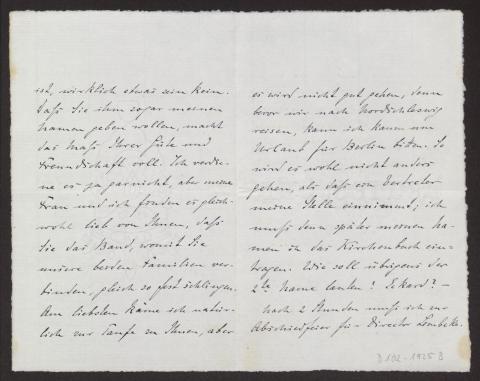 ist, wirklich etwas sein kein.
Daß Sie ihm sogar meinen
Namen geben wollen, macht
das Maß Ihrer Güte und
Freundschaft voll. Ich verdie-
ne es ja garnicht, aber meine
Frau und ich fanden es gleich-
wohl lieb von Ihnen, daß
Sie das Band, womit Sie
unsere beiden Familien ver-
binden, gleich so fest schlingen.
Am liebsten käme ich natür-
lich zur Taufe zu Ihnen, aber
es wird nicht gut gehen, denn
bevor wir nach Nordschleswig
reisen, kann ich kaum um
Urlaub für Berlin bitten. So
wird es wohl nicht anders
gehen, als daß ein Vertreter
meine Stelle einnimmt; ich
muß dann später meinen Na-
men in das Kirchenbuch ein-
tragen. Wie soll übrigens der
2te Name lauten? Eckard? -
Nach 2 Stunden muß ich zur
Abschiedsfeier für Director
D 102 - 1925 B